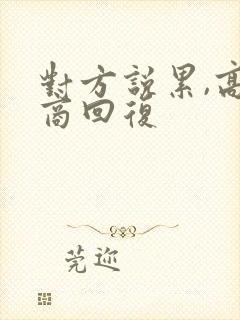 對方說累,高
商回復
莞迩